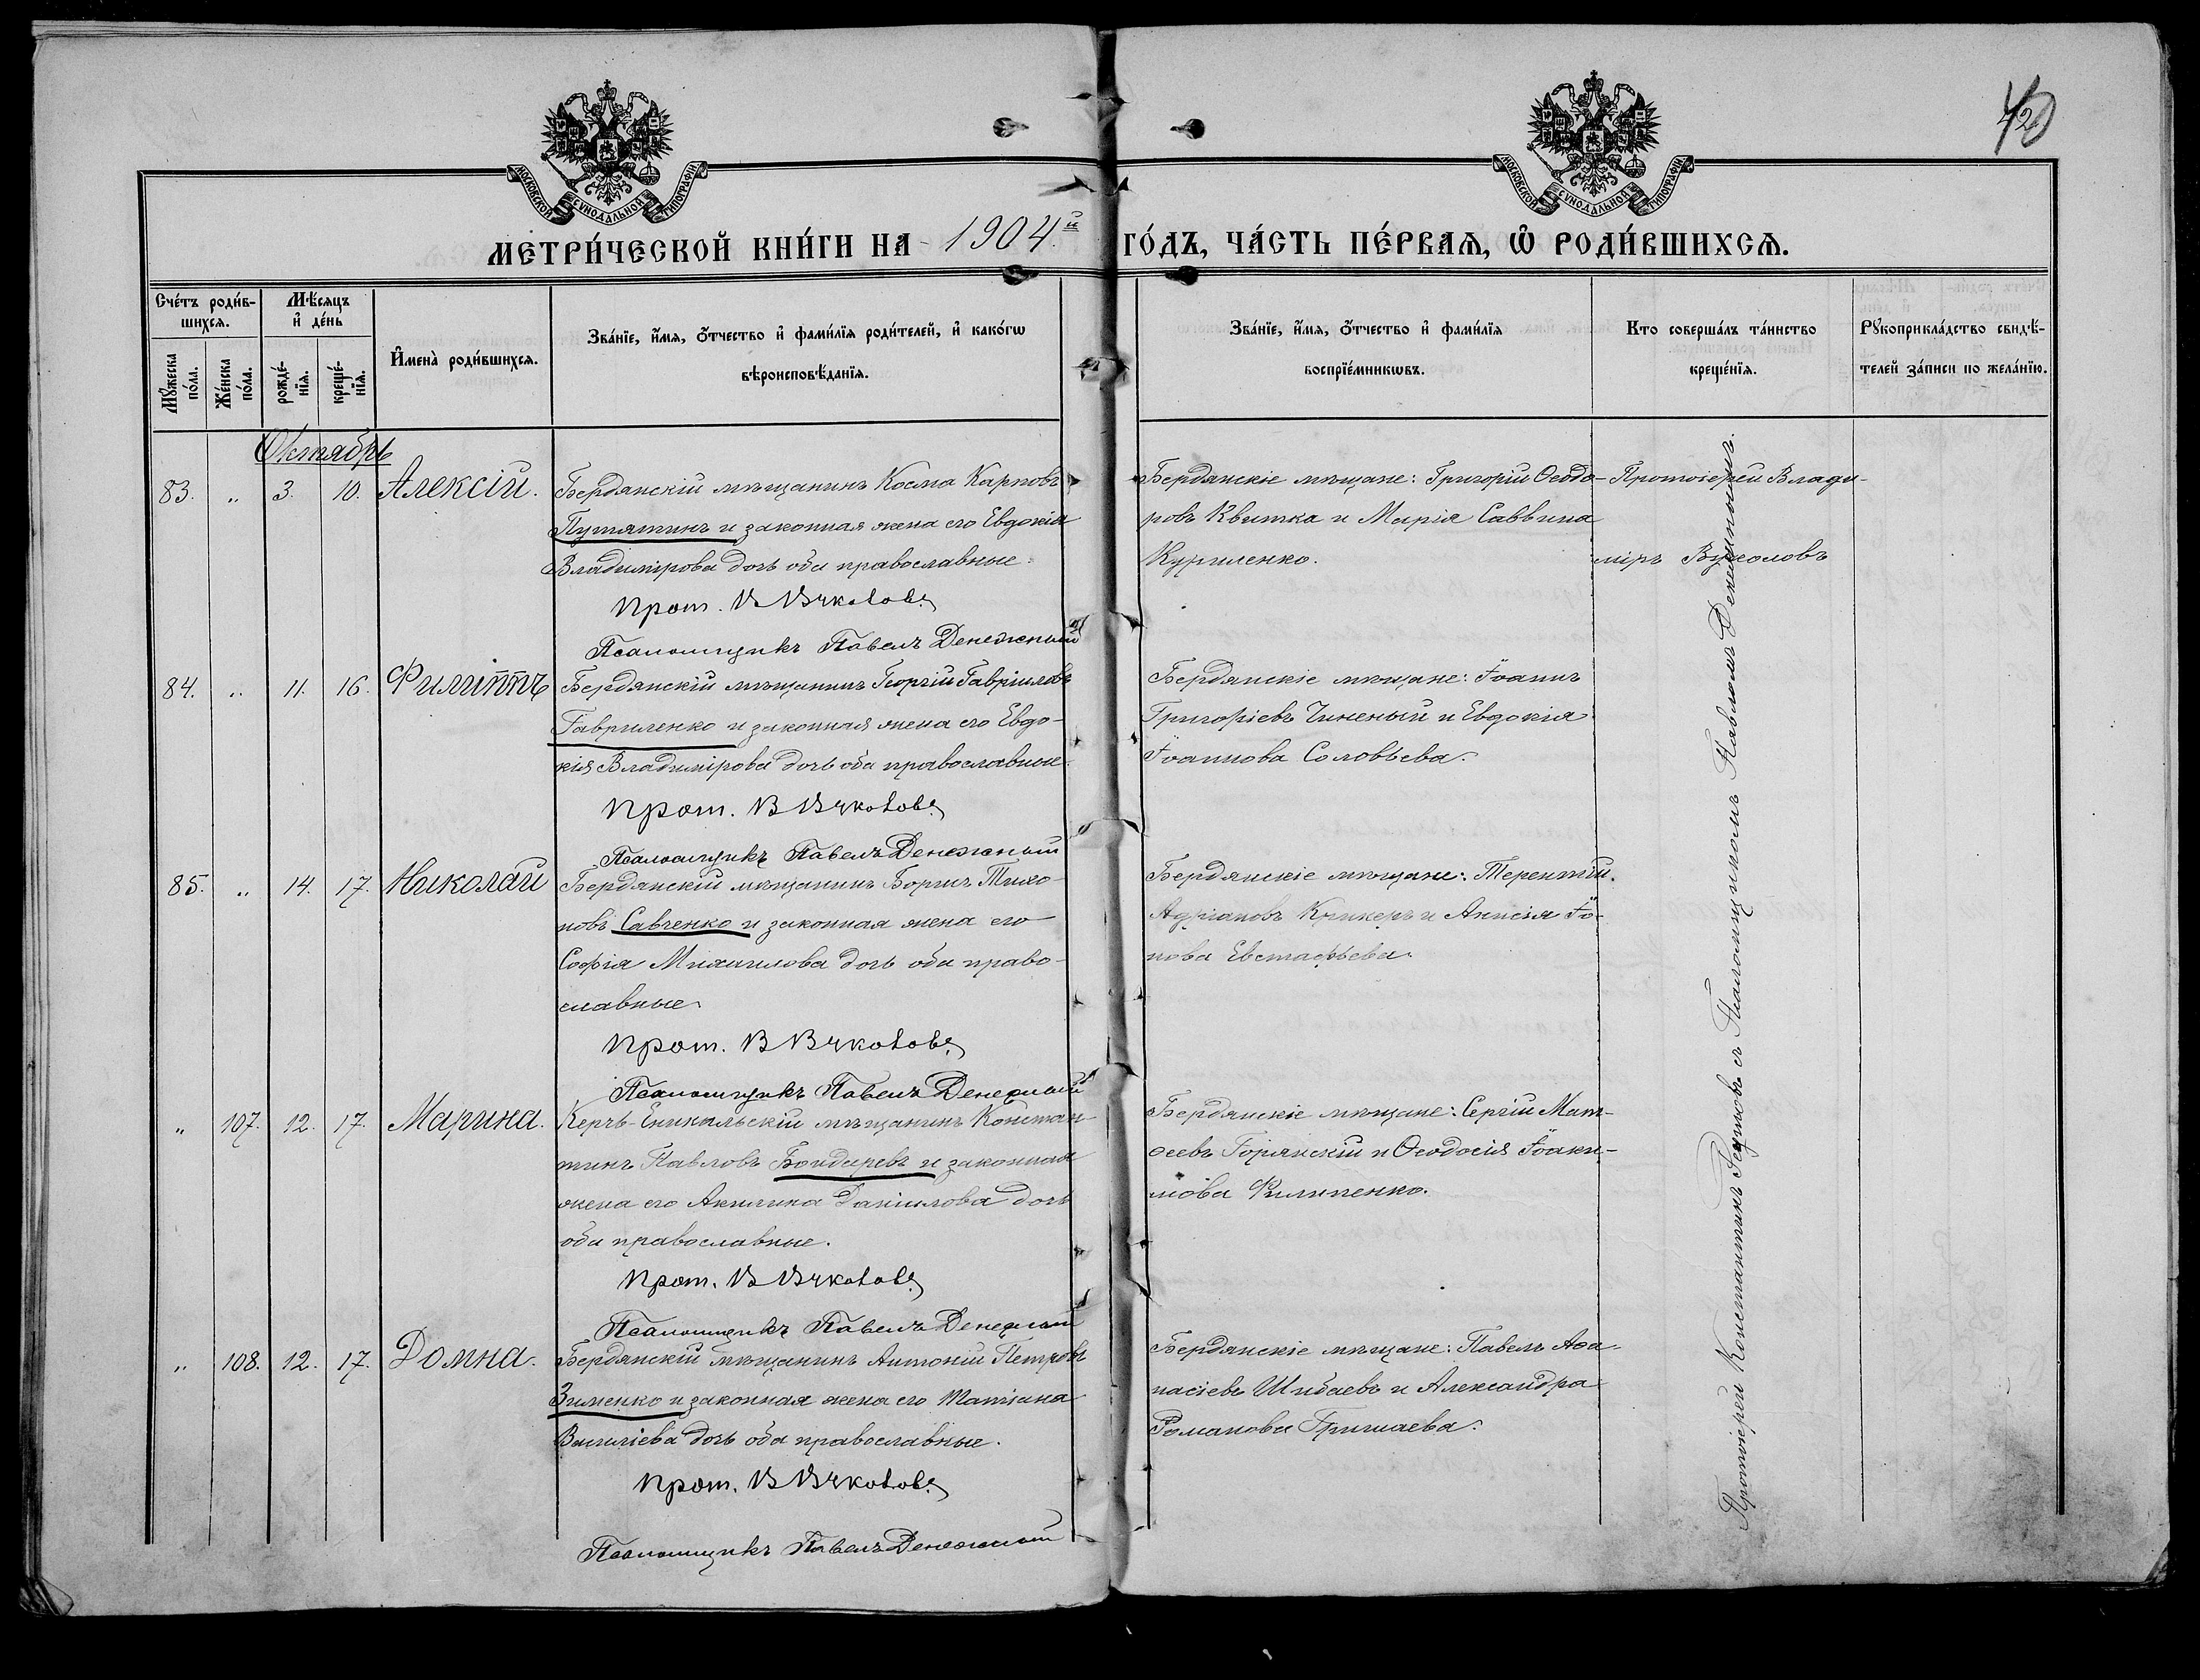 42
МОСКОВСКОЙ СѴНОДАЛЬНОЙ ТИПОГРАФІИ
МОСКОВСКОЙ СѴНОДАЛЬНОЙ ТИПОГРАФІИ
МЕТРИ́ЧЕСКОЙ КНИ́ГИ НА 1904.й ГО́ДЪ, ЧА́СТЬ ПЕ́РВАѦ, Ѡ҆ РОДИ́ВШИХСѦ.
Счéтъ роди́в-
шихсѧ.
Мꙋ́жеска по́ла.
Же́нска по́ла.
Мѣ́сѧцъ
и҆ де́нь
рожде́-
нїѧ.
креще́-
нїѧ.
И҆мена̀ роди́вшихсѧ.
Зва́нїе, и҆́мѧ, ѻ҆́тчество и҆ фами́лїѧ роди́телей, и҆ како́гѡ
вѣроисповѣ́данїѧ.
Зва́нїе, и҆́мѧ, ѻ҆́тчество и҆ фами́лїѧ
воспрїе́мникѡвъ.
Кто соверша́лъ та́инство
креще́нїѧ.
Рꙋкоприкла́дство свидѣ́-
телей за́писи по жела́нїю.
Октябрь
83. „ 3. 10. Алексій.
Бердянскій мѣщанинъ Косма Карповъ
Путятинъ и законная жена его Евдокія
Владимірова дочь оба православные.
Прот. В Вуколовъ
Псаломщикъ Павелъ Денежный
Бердянскіе мѣщане: Григорій Ѳеодо-
ровъ Квитка и Марія Саввина
Куриленко.
Протоіерей Влади-
міръ Вуколовъ
84. „ 11. 16. Филиппъ
Бердянскій мѣщанинъ Георгій Гавріиловъ
Гавриленко и законная жена его Евдо-
кія Владимірова дочь оба православные.
Прот. В Вуколовъ
Псаломщикъ Павелъ Денежный
Бердянскіе мѣщане: Іоаннъ
Григоріевъ Чиненый и Евдокія
Іоаннова Соловьева.
85. „ 14. 17. Николай
Бердянскій мѣщанинъ Борисъ Тихо-
новъ Савченко и законная жена его
Софія Михаилова дочь оба право-
славные.
Прот. В Вуколовъ
Псаломщикъ Павелъ Денежный
Бердянскіе мѣщане: Терентій
Адріановъ и Анисія Іо-
нова Евстафьева.
„ 107. 12. 17. Марина.
Керчь-Еникольскій мѣщанинъ Констан-
тинъ Павловъ Бондаревъ и законная
жена его Акилина Даніилова дочь
оба православные.
Прот. В Вуколовъ
Псаломщикъ Павелъ Денежный
Бердянскіе мѣщане: Сергій Мат-
ѳеевъ Горянскій и Ѳеодосія Іоаки-
мова Филипенко.
„ 108. 12. 17. Домна.
Бердянскій мѣщанинъ Антоній Петровъ
Зименко и законная жена его Татіана
Василіева дочь оба православные.
Прот. В Вуколовъ
Псаломщикъ Павелъ Денежный
Бердянскіе мѣщане: Павелъ Аѳа-
насіевъ Шибаевъ и Александра
Романова Гришаева.
Протоіерей Константинъ съ Псаломщикомъ Павломъ Денежнымъ.